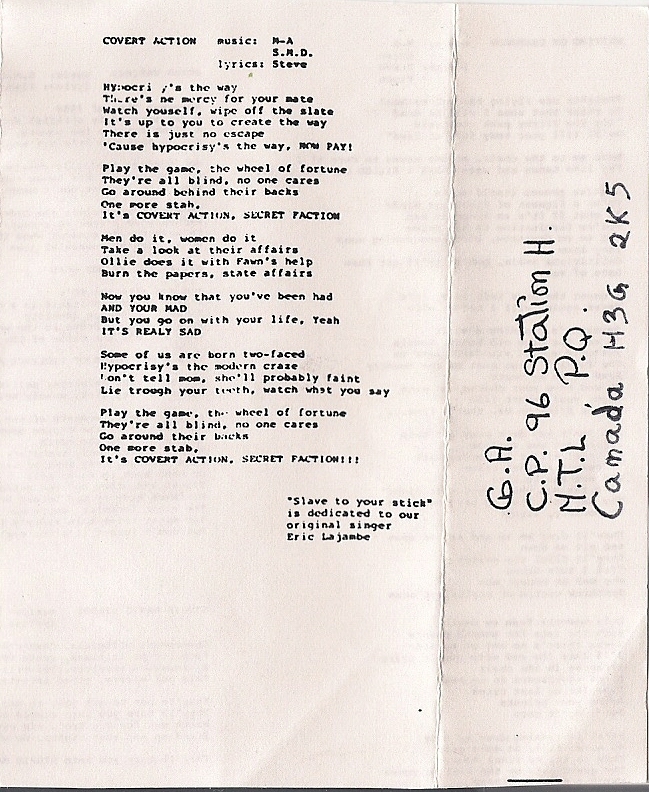 COVERT ACTION music: M-A
S.M.D.
lyrics: Steve
the way
There's no mercy for your mate
Watch youself, wipe off the slate
It's up to you to create the way
There is just no escape
'Cause hypocrisy's the way, NOW PAY!
Play the game, the wheel of fortune
They're all blind, no one cares
Go around behind their backs
One more stab,
It's COVERT ACTION, SECRET FACTION
Men do it, women do it
Take a look at their affairs
Ollie does it with Fawn's help
Burn the papers, state affairs
Now you know that you've been had
AND YOUR MAD
But you go on with your life, Yeah
IT'S REALY SAD
Some of us are born two-faced
Hypocrisy's the modern craze
Don't tell mom, she'll probably faint
Lie trough your teeth, watch what you say
Play the game, the wheel of fortune
They're all blind, no one cares
Go around their backs
One more stab,
It's COVERT ACTION, SECRET FACTION!!!
"Slave to your stick"
is dedicated to our
original singer
Eric Lajambe
G.A.
C.P. 96 Station H.
M.T.L P.Q.
Canada H3G 2K5